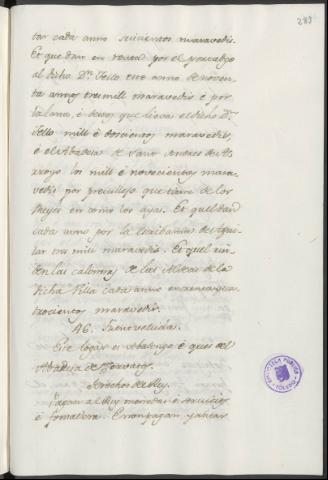 289
tar cada anno seiscientos maravedis.
Et que dan en renta por el portadgo
al dicho Dn. Tello este anno de noven-
ta annos tres mill maravedis é por
la lana, é desos que lieva el dicho Dn.
Tello mill é doscientos maravedis,
é el Abadesa de Sant Andres de Ar-
royo los mill é novecientos mara-
vedis por previllejo que tiene de los
Reyes en como los aya. Et quel dan
cada anno por la Escribania de Agui-
lar tres mill maravedis. Et quel rin-
den las calonnas de las Aldeas de la
dicha Villa cada anno
trocientos maravedis.
46. Fuenveluda.
Este logar es abadengo é que es del
Abadesa de
Derechos del Rey.
Pagan al Rey monedas é servicios
é fonsadera. Et non pagan yantar
BIBLIOTECA PUBLICA
TOLEDO